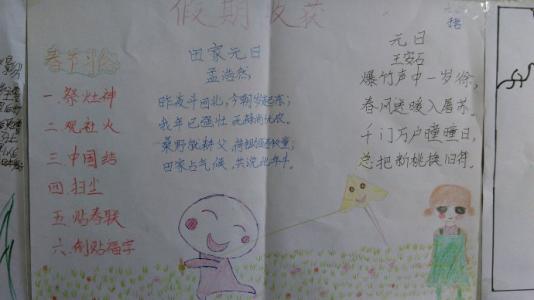 假期收获
春节习俗
一.祭灶神
二.观社火
三.中国结
四.扫尘
五.贴春联
六.倒贴福字
田家元日
孟浩然
昨夜斗回北,今朝岁起东;
我年已强 无禄尚忧农。
桑野就耕父,荷锄随牧童;
田家占气候,共说此年丰。
元日
王安石
爆竹声中一岁除,
春风送暖入屠苏。
千门万户曈曈日,
总把新桃换旧符。